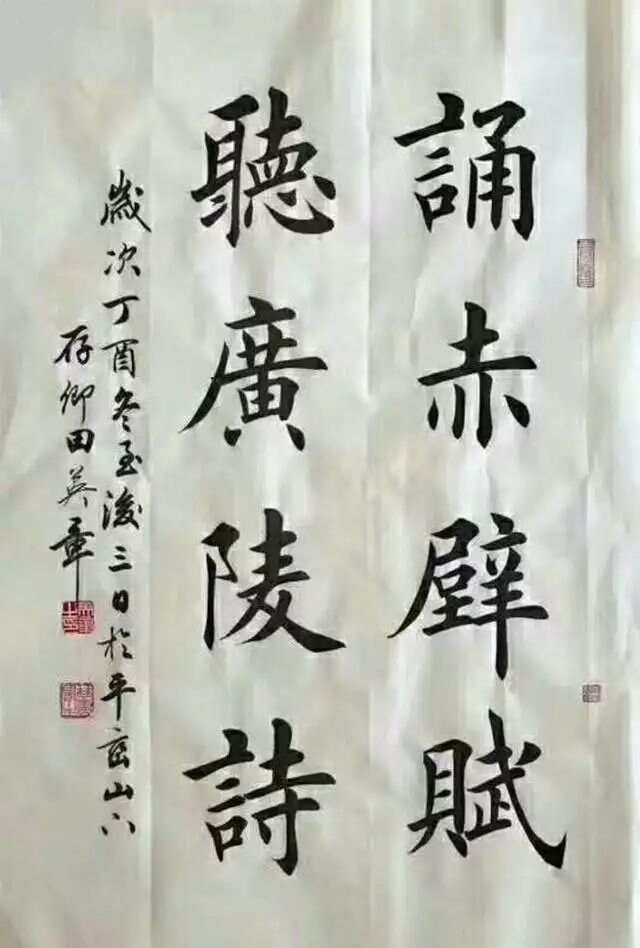 誦赤壁賦
聽廣陵詩
歲次丁酉冬至後三日於平峦山下
存卿田英章